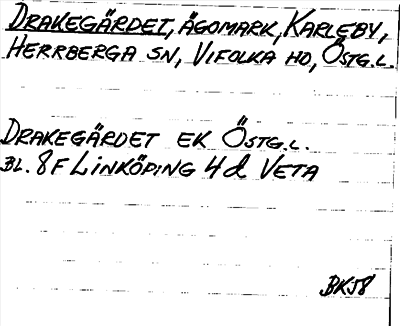 DRAKEGÄRDET, ÄGOMARK, KARLEBY,
HERRBERGA SN, VIFOLKA HD, ÖSTG.L.
DRAKEGÄRDET EK ÖSTG.L.
BL. 8F LINKÖPING 4d VETA
BKJ8